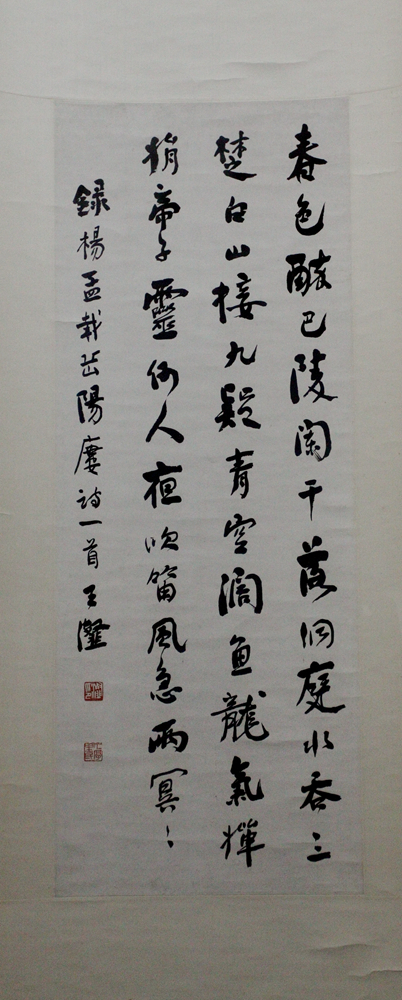 春色醉巴陵闌干落洞庭水吞三
楚白山接九疑青空濶魚龍氣嬋
娟帝子靈何人夜吹笛風急雨冥〻
錄楊孟載岳陽廔詩一首王瀣